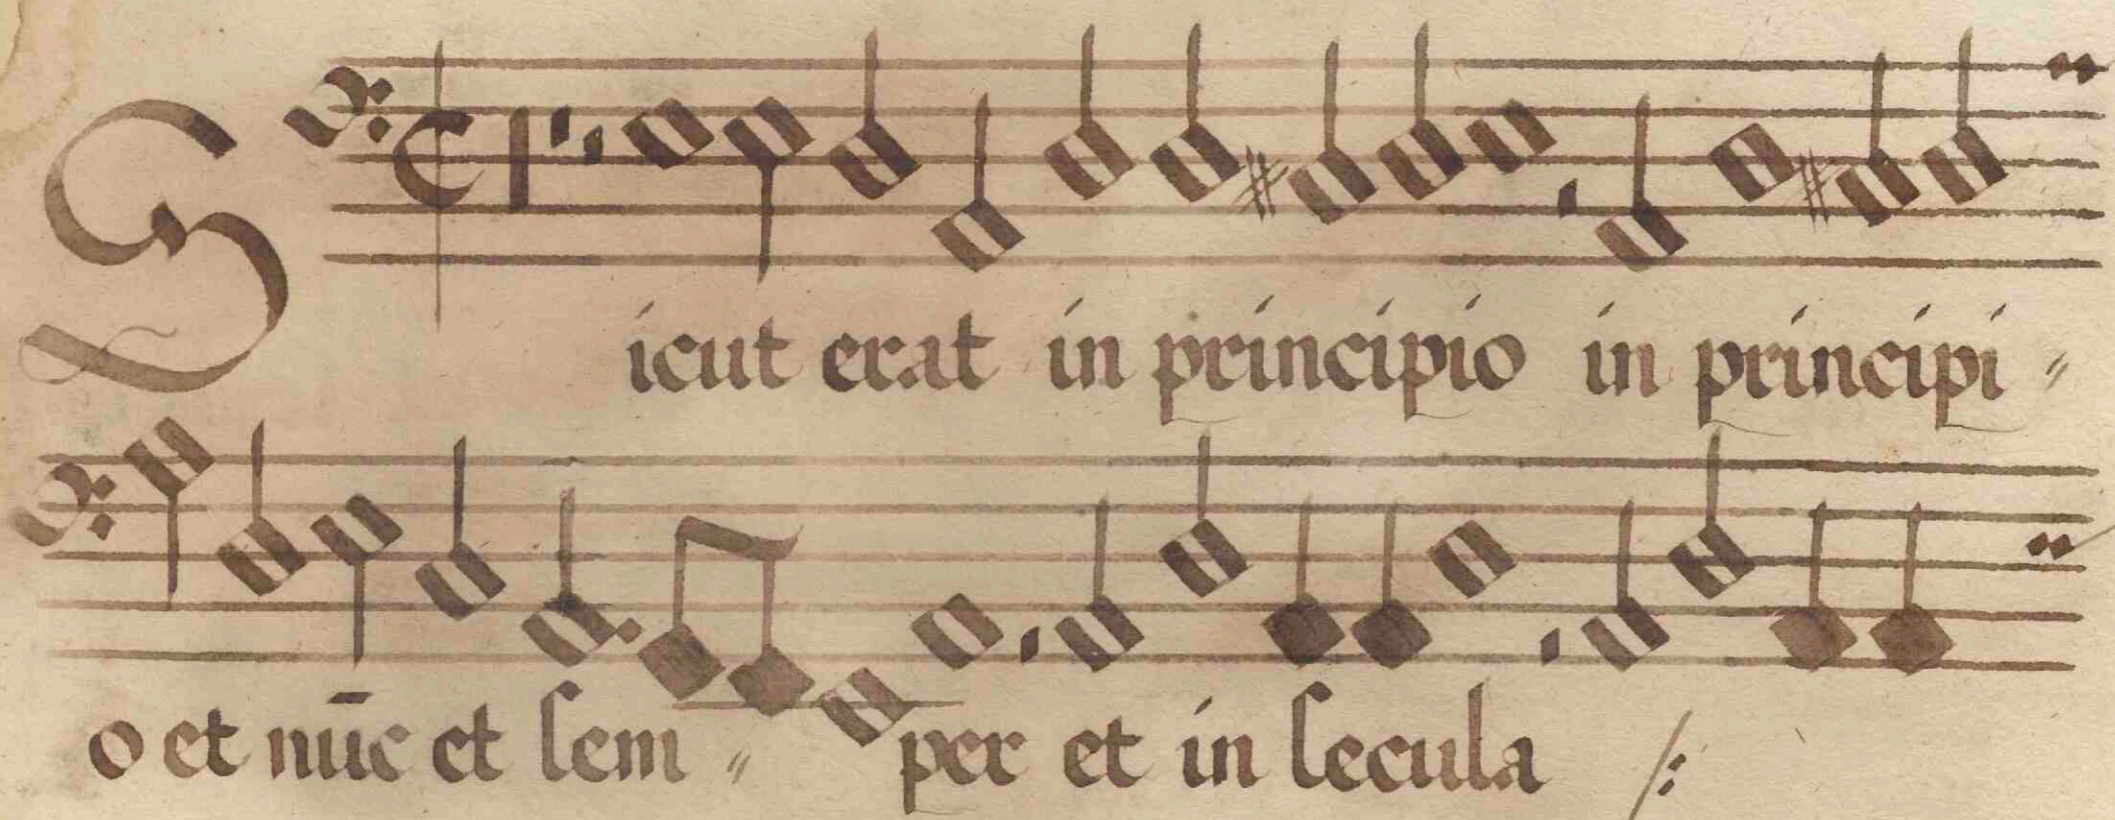 Sicut erat in principio in principi〃
o et nūc et sem〃per et in secula /: